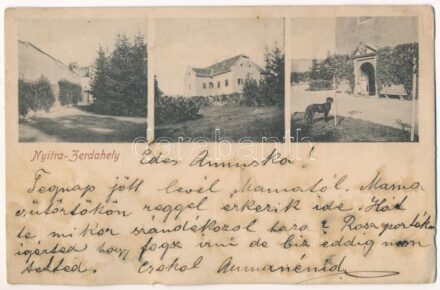 Nyitra-Zerdahely
Édes Annuska!
Tegnap jött levél Mamától. Mama
csütörtökön reggel érkezik ide. Hát
te mikor szándékozol haza? Roszportéka
igérted hogy fogsz irni de biz eddig nem
tetted. Csokol
carobarath